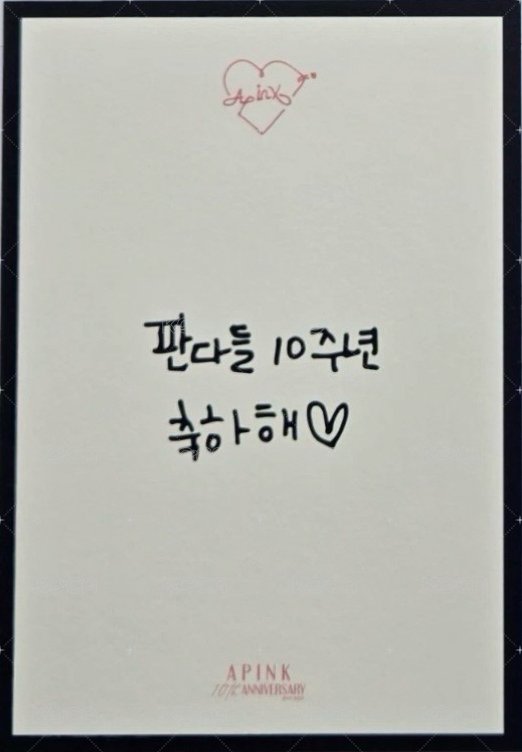 Apink
판다들 10주년
축하해♡
APINK
10th ANNIVERSARY